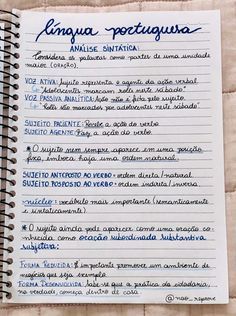 língua portuguesa
ANÁLISE SINTÁTICA:
Considera as palavras como partes de uma unidade
maior (ORAÇÃO).
VOZ ATIVA: Sujeito representa o agente da ação verbal
↳ "Adolescentes marcam rolês neste sábado"
VOZ PASSIVA ANALÍTICA: Ação não é feita pelo sujeito
↳ "Rolês são marcados por adolescentes neste sábado"
SUJEITO PACIENTE: Recebe a ação do verbo
SUJEITO AGENTE: Faz a ação do verbo.
* O sujeito nem sempre aparece em uma posição
fixa, embora haja uma ordem natural.
SUJEITO ANTEPOSTO AO VERBO - ordem direta/natural
SUJEITO POSPOSTO AO VERBO - ordem indireta/inversa
- núcleo: vocábulo mais importante (semanticamente
e sintaticamente)
* O sujeito ainda pode aparecer como uma oração co-
nhecida como oração subordinada substantiva
subjetiva:
FORMA REDUZIDA: É importante promover um ambiente de
negócio que seja exemplo
FORMA DESENVOLVIDA: Sabe-se que a prática da cidadania,
na verdade, começa dentro de casa